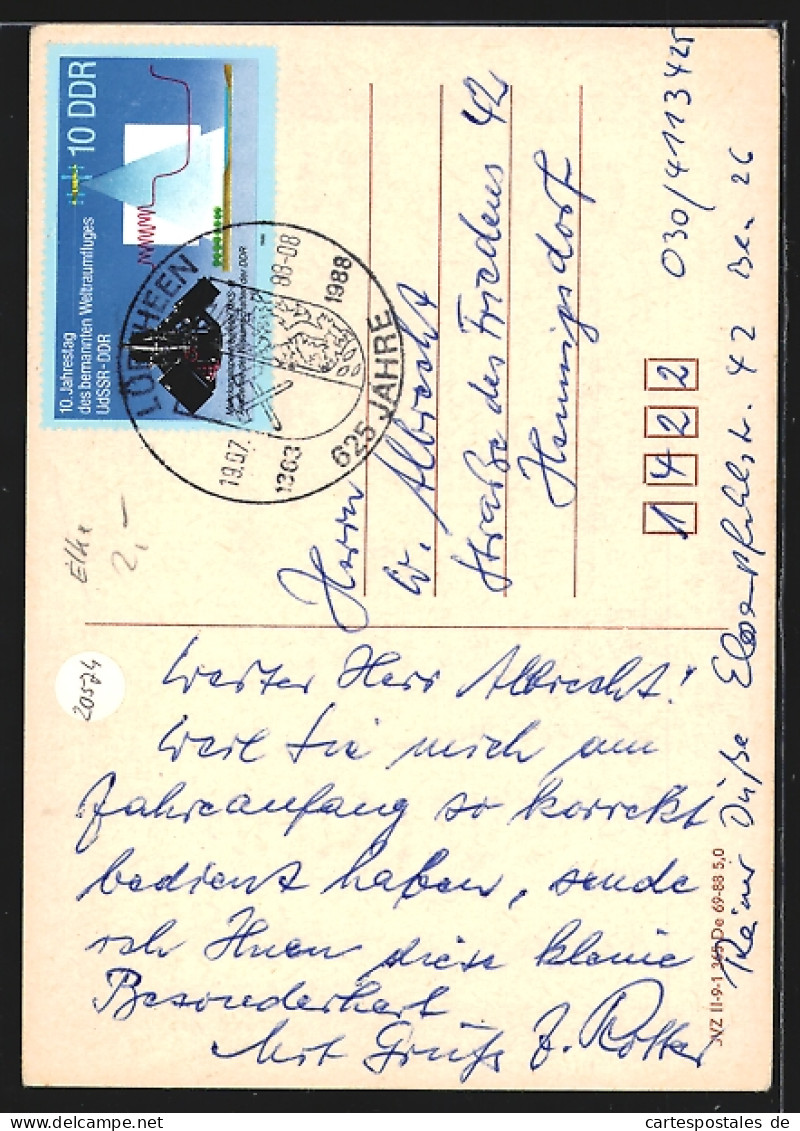 10 DDR
10. Jahrestag
des bemannten Weltraumfluges
UdSSR-DDR
1988
19.07. 88-08
1363
625 JAHRE
Elke
2,-
20524
Herrn
W. Albrecht
Straße des Friedens 42
Hennigsdorf
1422
030/4113425
Werter Herr Albrecht!
Weil Sie mich am
Jahreanfang so korrekt
bedient haben, sende
ich Ihnen diese kleine
Besonderheit.
Mit Gruß
De 69-88 5,0
str. 42 Ber. 26
cartespostales de